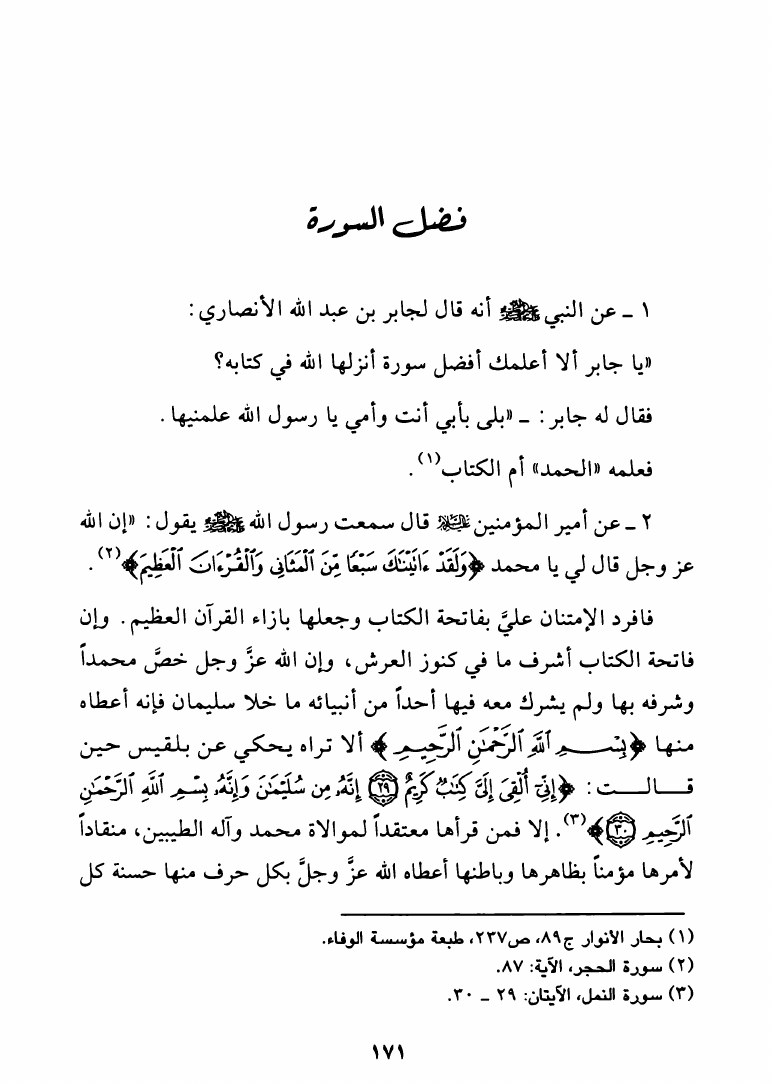 فضل السورة
١ ـ عن النبي ﷺ أنه قال لجابر بن عبد الله الأنصاري :
«يا جابر ألا أعلمك أفضل سورة أنزلها الله في كتابه؟
فقال له جابر : ـ «بلى بأبي أنت وأمي يا رسول الله علمنيها .
فعلمه «الحمد» أم الكتاب(١) .
٢ ـ عن أمير المؤمنين قال سمعت رسول الله ﷺ يقول : «إن الله
عز وجل قال لي يا محمد ﴿وَلَقَدْ ءَاتَيْنَٰكَ سَبْعًا مِّنَ ٱلْمَثَانِى وَٱلْقُرْءَانَ ٱلْعَظِيمَ﴾(٢) .
فافرد الإمتنان عليَّ بفاتحة الكتاب وجعلها بازاء القرآن العظيم . وإن
فاتحة الكتاب أشرف ما في كنوز العرش، وإن الله عزَّ وجل خصَّ محمداً
وشرفه بها ولم يشرك معه فيها أحداً من أنبيائه ما خلا سليمان فإنه أعطاه
منها ﴿بِسْمِ ٱللَّهِ ٱلرَّحْمَٰنِ ٱلرَّحِيمِ﴾ ألا تراه يحكي عن بلقيس حين
قالت : ﴿إِنِّىٓ أُلْقِىَ إِلَىَّ كِتَٰبٌ كَرِيمٌ ٢٩ إِنَّهُۥ مِن سُلَيْمَٰنَ وَإِنَّهُۥ بِسْمِ ٱللَّهِ ٱلرَّحْمَٰنِ
ٱلرَّحِيمِ ٣٠﴾(٣) . إلا فمن قرأها معتقداً لموالاة محمد وآله الطيبين، منقاداً
لأمرها مؤمناً بظاهرها وباطنها أعطاه الله عزَّ وجلَّ بكل حرف منها حسنة كل
(١) بحار الأنوار ج٨٩، ص٢٣٧، طبعة مؤسسة الوفاء.
(٢) سورة الحجر، الآية: ٨٧.
(٣) سورة النمل، الآيتان: ٢٩ ـ ٣٠.
١٧١